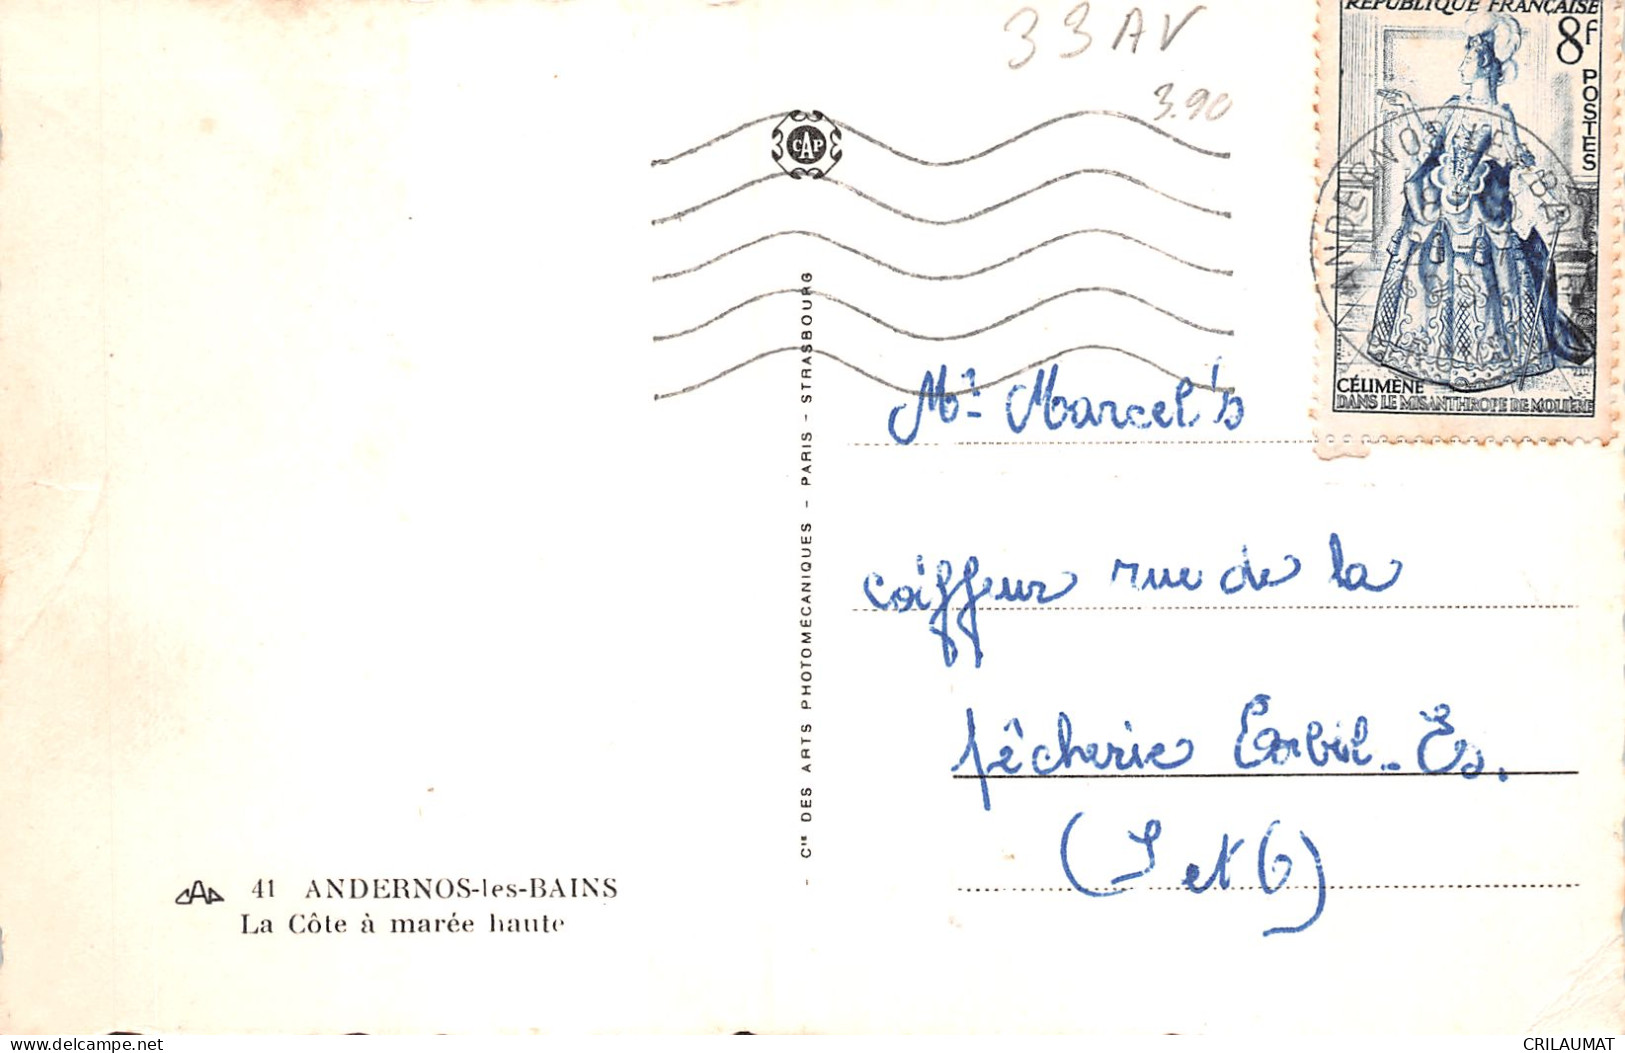 33 AV
3.90
REPUBLIQUE FRANÇAISE
8f
POSTES
CÉLIMÈNE
DANS LE MISANTHROPE DE MOLIÈRE
ANDERNOS-LES-BA
CAP
Cie DES ARTS PHOTOMÉCANIQUES - PARIS - STRASBOURG
Mr Marcel's
coiffeur rue de la
pêcherie Corbeil-Es.
(S et O)
CAP 41 ANDERNOS-les-BAINS
La Côte à marée haute
delcampe.net
CRILAUMAT